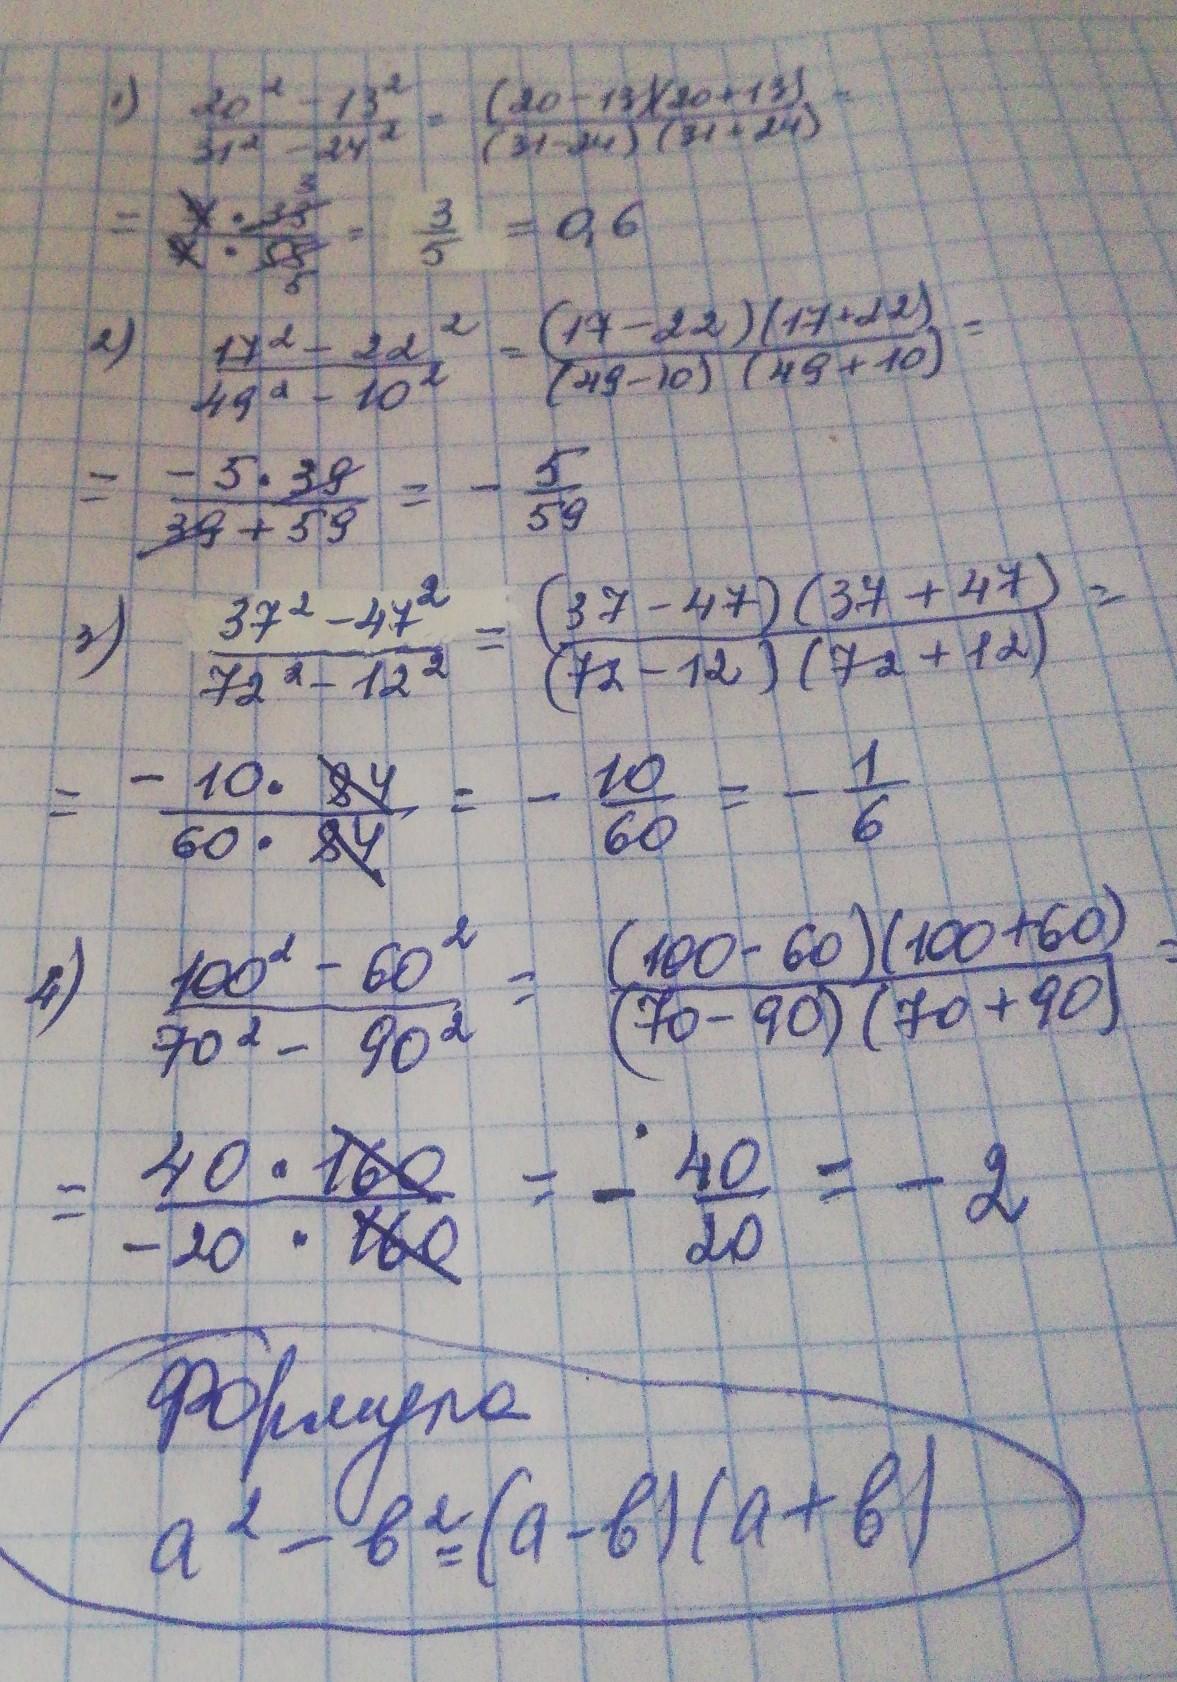 1) (20² - 13²)/(31² - 24²) = ((20-13)(20+13))/((31-24)(31+24)) =
= (7·33 3)/(7·55 5) = 3/5 = 0,6
2) (17² - 22²)/(49² - 10²) = ((17-22)(17+22))/((49-10)(49+10)) =
= (-5·39)/(39+59) = - 5/59
3) (37² - 47²)/(72² - 12²) = ((37-47)(37+47))/((72-12)(72+12)) =
= (-10·84)/(60·84) = - 10/60 = - 1/6
4) (100² - 60²)/(70² - 90²) = ((100-60)(100+60))/((70-90)(70+90)) =
= (40·160)/(-20·160) = - 40/20 = - 2
Формула
a² - в² = (a-в)(a+в)